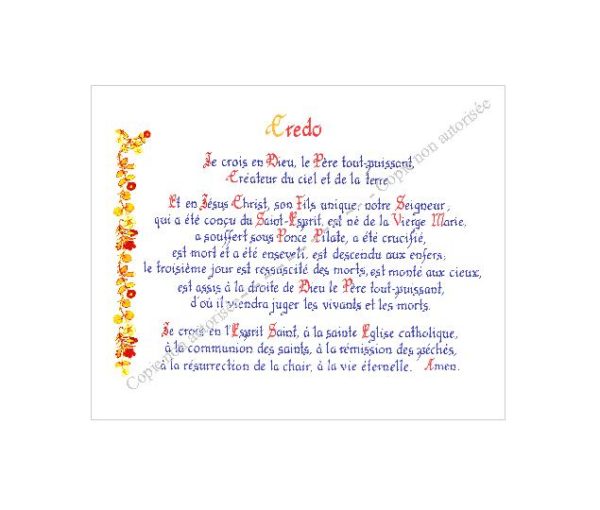 Credo
Je crois en Dieu, le Père tout-puissant,
Créateur du ciel et de la terre.
Et en Jésus Christ, son Fils unique, notre Seigneur ;
qui a été conçu du Saint-Esprit, est né de la Vierge Marie,
a souffert sous Ponce Pilate, a été crucifié,
est mort et a été enseveli, est descendu aux enfers ;
le troisième jour est ressuscité des morts, est monté aux cieux,
est assis à la droite de Dieu le Père tout-puissant,
d'où il viendra juger les vivants et les morts.
Je crois en l'Esprit Saint, à la sainte Eglise catholique,
à la communion des saints, à la rémission des péchés,
à la résurrection de la chair, à la vie éternelle. Amen.
Copie non autorisée --- --- Copie non autorisée